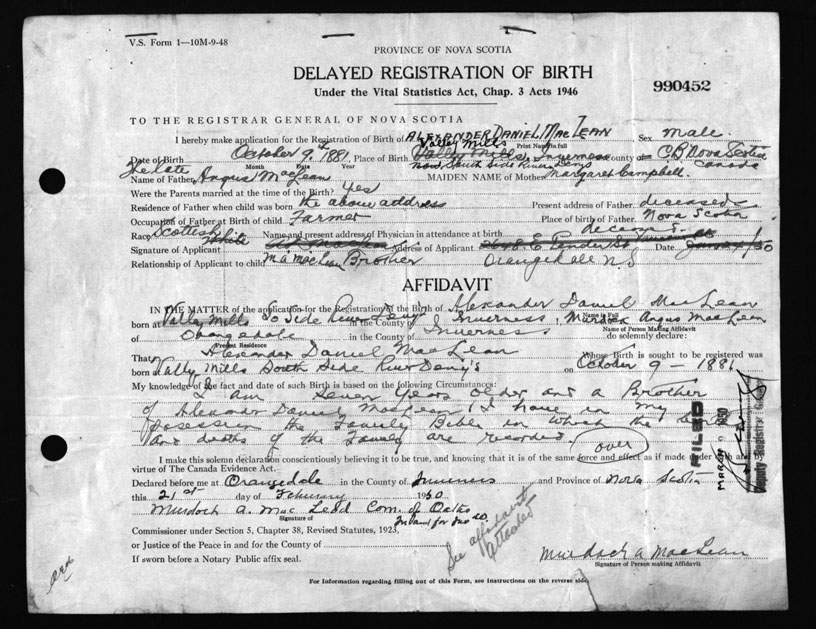 V.S. Form 1—10M-9-48
PROVINCE OF NOVA SCOTIA
DELAYED REGISTRATION OF BIRTH
990452
Under the Vital Statistics Act, Chap. 3 Acts 1946
TO THE REGISTRAR GENERAL OF NOVA SCOTIA
I hereby make application for the Registration of Birth of ALEXANDER DANIEL MacLEAN Sex male.
Print Name in Full
Valley Mills
Date of Birth October 9th 1881 Place of Birth Valley Mills, Inverness County of C.B. Nova Scotia
Month Date Year South Side River Denys Canada
The late
Name of Father Angus MacLean MAIDEN NAME of Mother Margaret Campbell.
Were the Parents married at the time of the Birth? yes
Residence of Father when child was born the above address Present address of Father deceased
Occupation of Father at Birth of child Farmer Place of birth of Father Nova Scotia
Race Scottish White Name and present address of Physician in attendance at birth deceased.
Signature of Applicant Address of Applicant Date
Relationship of Applicant to child Brother Orangedale N.S
AFFIDAVIT
IN THE MATTER of the application for the Registration of the Birth of Alexander Daniel MacLean
Name in Full
born at Valley Mills So Side River Denys in the County of Inverness, I, Murdoch Angus MacLean
Name of Person Making Affidavit
of Orangedale in the County of Inverness do solemnly declare:
Present Residence
That Alexander Daniel MacLean Whose Birth is sought to be registered was
born at Vally Mills South Side River Deny's on October 9 – 1881
My knowledge of the fact and date of such Birth is based on the following Circumstances:
I am seven years older and a Brother
of Alexander Daniel MacLean / I have in my
possession the Family Bible in which the births
and deaths of the Family are recorded.
over
I make this solemn declaration conscientiously believing it to be true, and knowing that it is of the same force and effect as if made under oath and by
virtue of The Canada Evidence Act.
Declared before me at Orangedale in the County of Inverness and Province of Nova Scotia
this 21st day of February 1950
Murdoch A. MacLeod Com. of Oaths
Signature of
In and for
Commissioner under Section 5, Chapter 38, Revised Statutes, 1923,
or Justice of the Peace in and for the County of
If sworn before a Notary Public affix seal.
See affidavit attached
Murdoch A MacLean
Signature of Person making Affidavit
For Information regarding filling out of this Form, see instructions on the reverse side.
FILED
MAR 9 1950
Deputy Registrar General